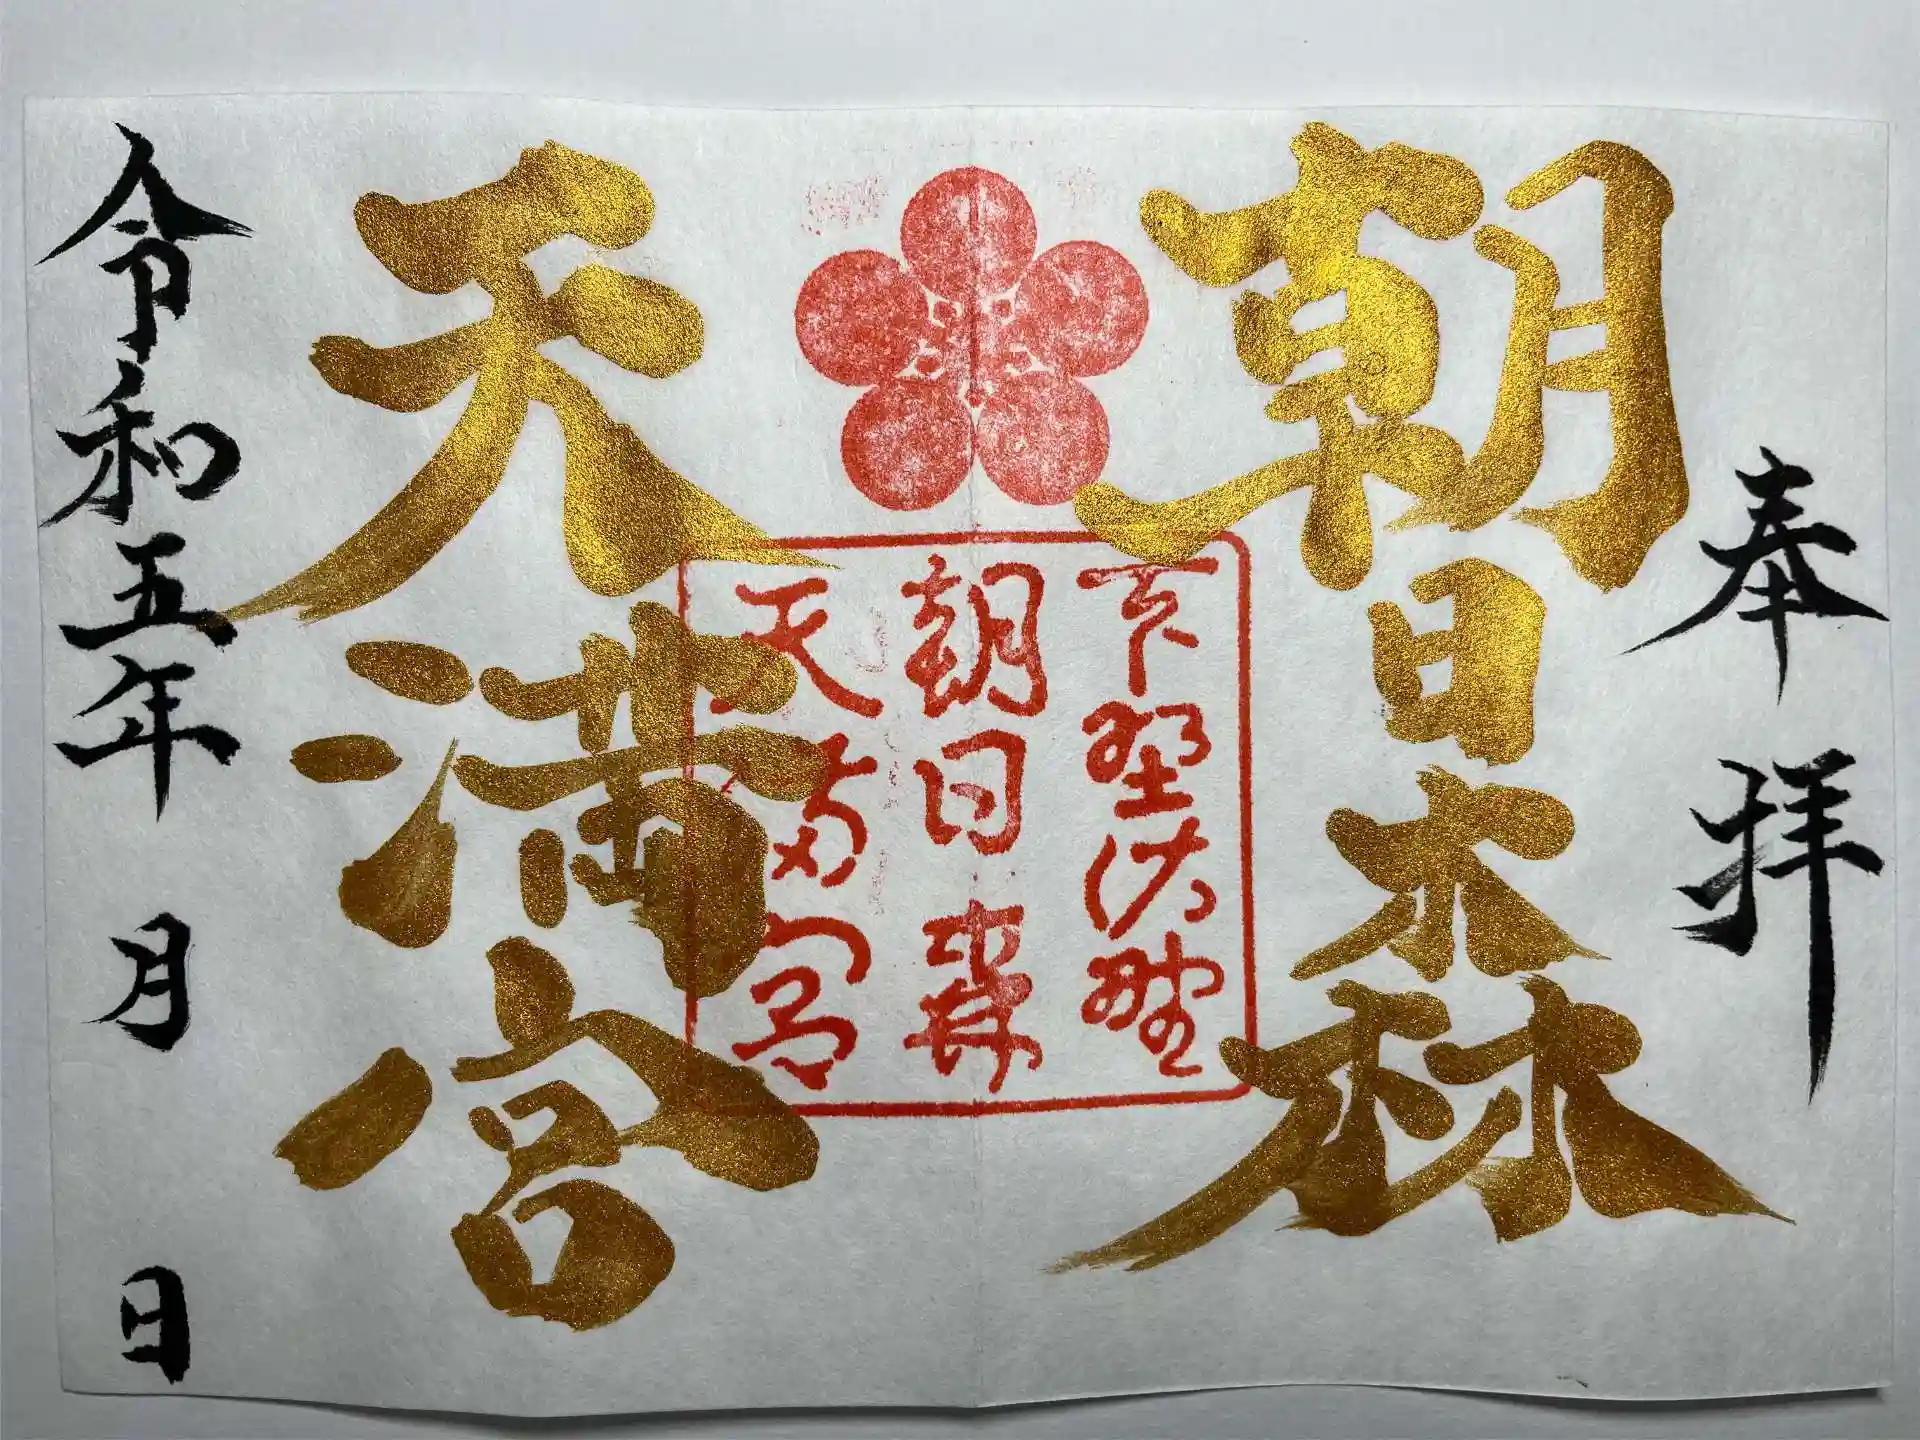 奉拝
朝日森
天満宮
下野佐野
朝日森
天満宮
令和五年 月 日